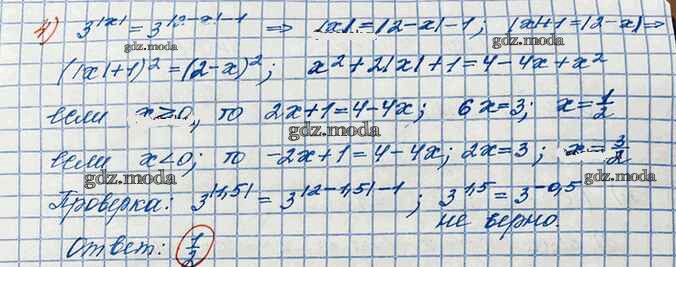 4) 3^|x| = 3^|2-x|-1 ⇒ |x| = |2-x| - 1; |x|+1 = |2-x| ⇒
gdz.moda
gdz.moda
(|x|+1)² = (2-x)²; x² + 2|x| + 1 = 4 - 4x + x²
если x ≥ 0, то 2x+1 = 4-4x; 6x = 3; x = 1/2
gdz.moda
gdz.moda
если x < 0; то -2x+1 = 4-4x; 2x = 3; x = 3/2
gdz.moda
gdz.moda
Проверка: 3^|1,5| = 3^|2-1,5|-1; 3^1,5 = 3^-0,5
не верно.
gdz.moda
Ответ: 1/2